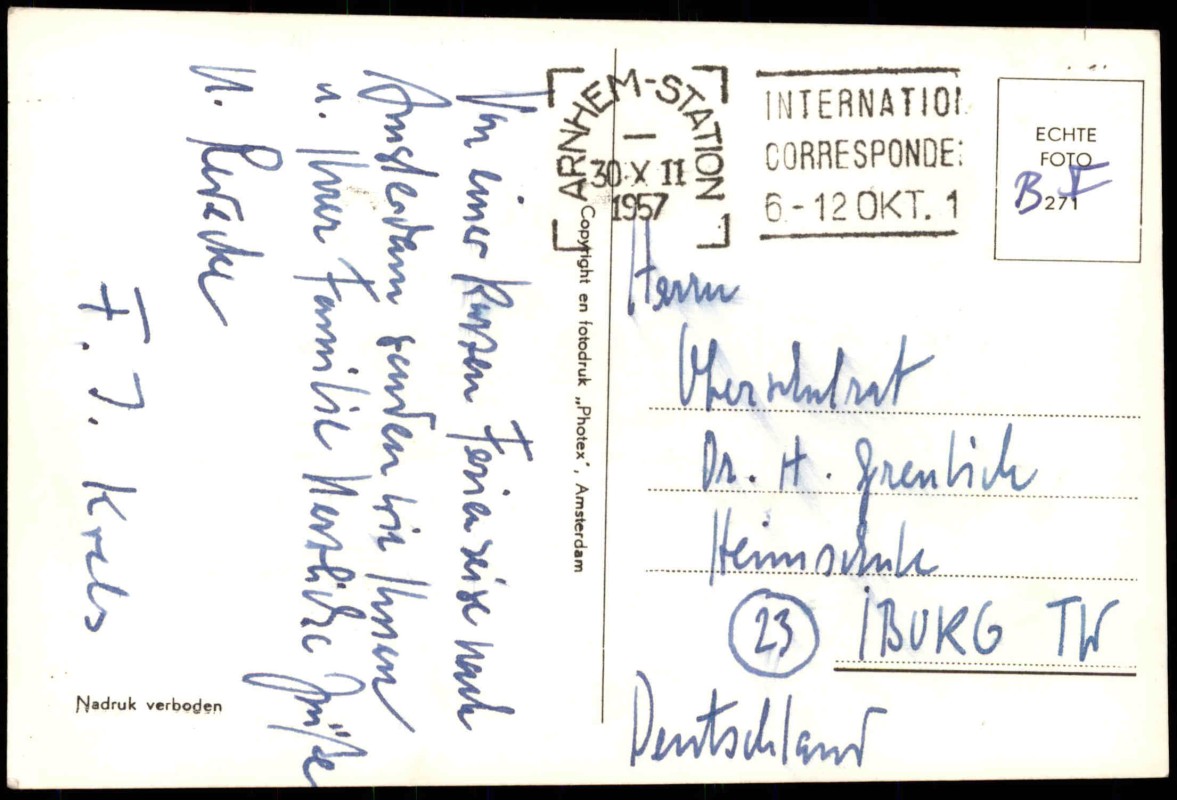 Von einer kurzen Ferienreise nach
Amsterdam senden wir Ihnen
u. Ihrer Familie herzliche Grüße
F. J. Krebs
Nadruk verboden
Copyright en fotodruk „Photex", Amsterdam
ARNHEM-STATION
30·X II
1957
INTERNATIO
CORRESPONDE
6-12 OKT. 1
ECHTE
FOTO
271
Herrn
Oberschulrat
Dr. H.
Heimschule
(23) IBURG TW
Deutschland